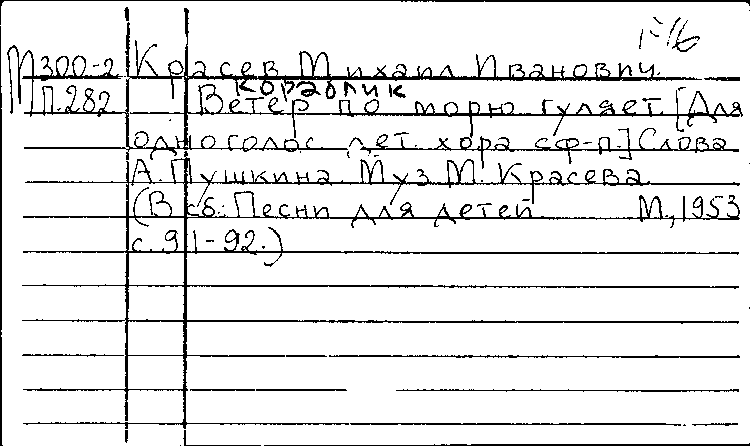 Г-16
М300-2 Красев Михаил Иванович.
кораблик
П.282 Ветер по морю гуляет. [Для
одноголос. дет. хора с ф-п.] Слова
А. Пушкина. Муз. М. Красева.
(В сб.: Песни для детей. М., 1953
с. 91-92.)